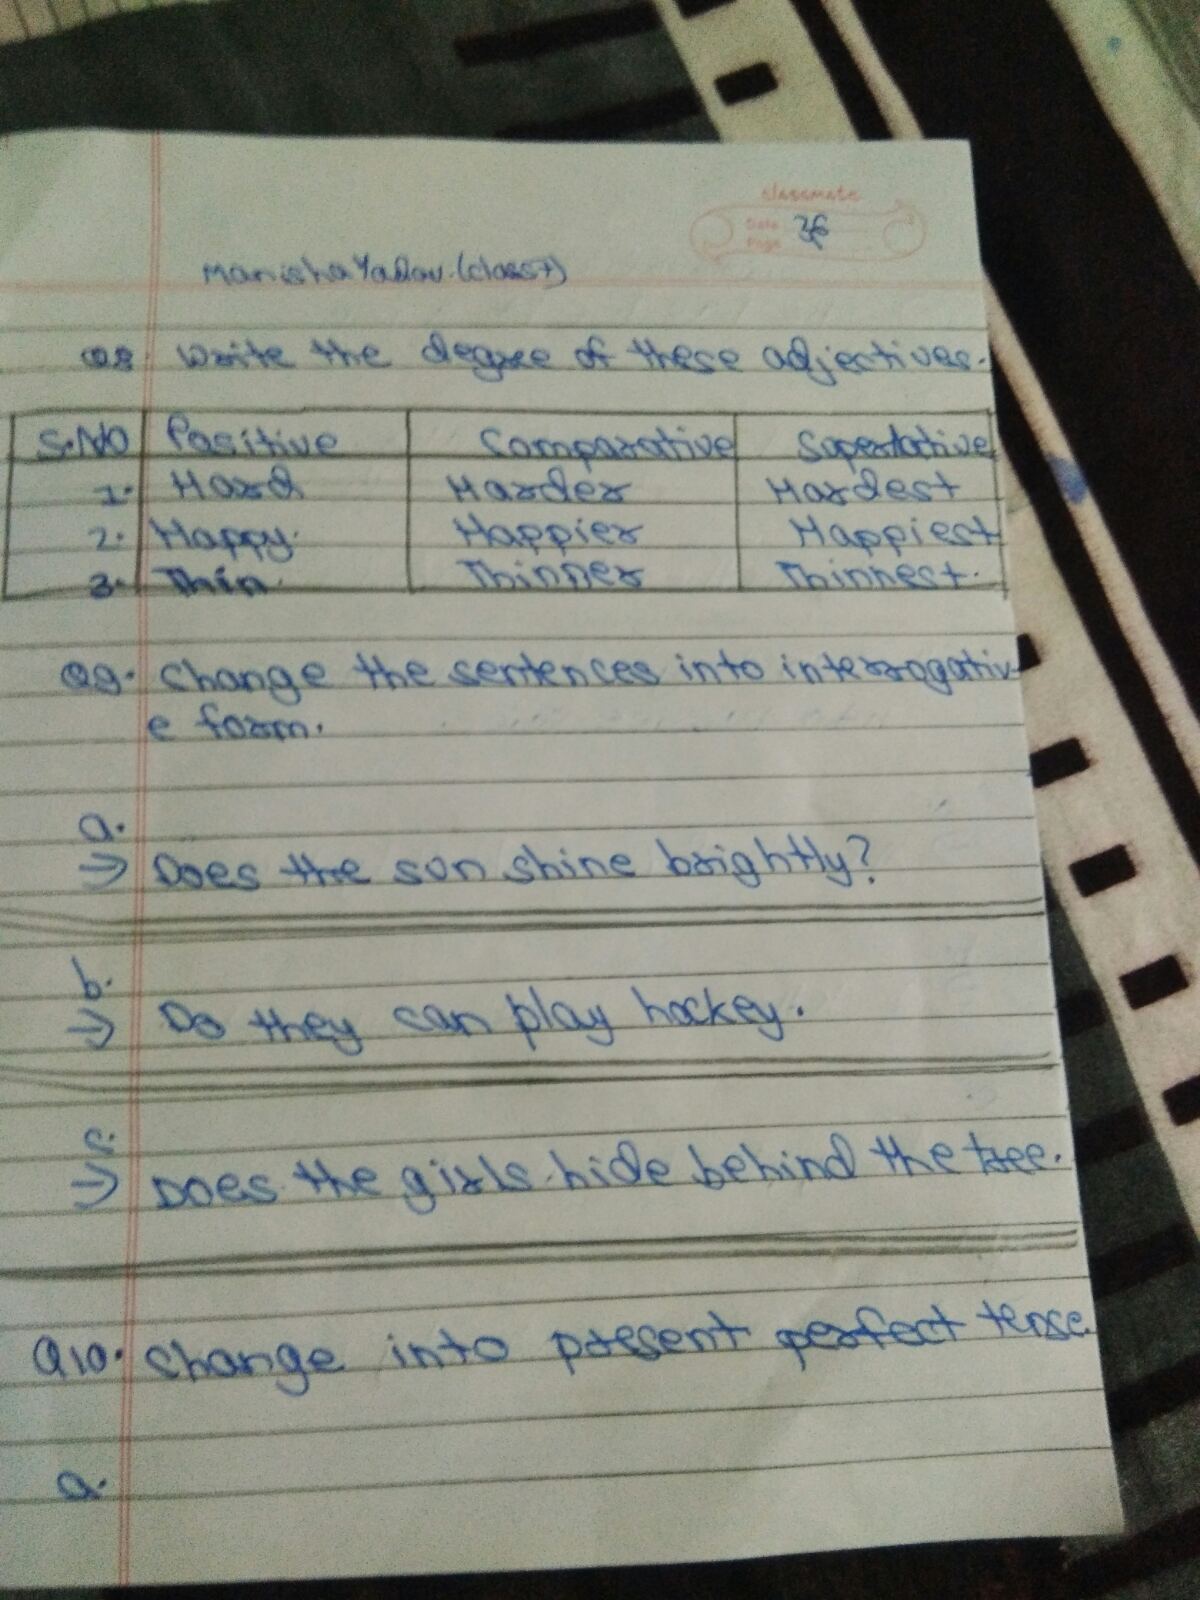 classmate
Date
Page
Manisha Yadav.(class 7)
Q8. Write the degree of these adjectives.
S.NO Positive Comparative Superlative
1. Hard Harder Hardest
2. Happy. Happier Happiest
3. Thin. Thinner Thinnest.
Q9. Change the sentences into interrogativ-
e form.
a.
→ Does the sun shine brightly?
b.
→ Do they can play hockey.
c.
→ Does the girls hide behind the tree.
Q10. Change into present perfect tense.
a.